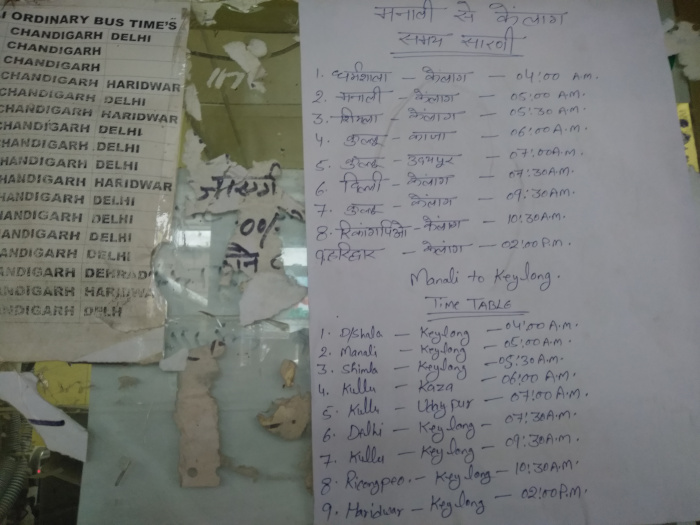 I ORDINARY BUS TIME'S
CHANDIGARH DELHI
CHANDIGARH
CHANDIGARH
CHANDIGARH HARIDWAR
CHANDIGARH DELHI
CHANDIGARH HARIDWAR
CHANDIGARH DELHI
CHANDIGARH DELHI
CHANDIGARH DELHI
CHANDIGARH HARIDWAR
CHANDIGARH DELHI
CHANDIGARH DELHI
CHANDIGARH DELHI
ANDIGARH DEHRAD
ANDIGARH HARIDWA
ANDIGARH DELH
मनाली से केलांग
समय सारणी
1. धर्मशाला – केलांग – 04:00 A.M.
2. मनाली – केलांग – 05:00 A.M.
3. शिमला – केलांग – 05:30 A.M.
4. कुल्लू – काजा – 06:00 A.M.
5. कुल्लू – उदयपुर – 07:00 A.M.
6. दिल्ली – केलांग – 07:30 A.M.
7. कुल्लू – केलांग – 09:30 A.M.
8. रिकांगपिओ – केलांग – 10:30 A.M.
9. हरिद्वार – केलांग – 02:00 P.M.
Manali to Keylong.
TIME TABLE
1. D/Shala – Keylong – 04:00 A.M.
2. Manali – Keylong – 05:00 A.M.
3. Shimla – Keylong – 05:30 A.M.
4. Kullu – Kaza – 06:00 A.M.
5. Kullu – Udaypur – 07:00 A.M.
6. Delhi – Keylong – 07:30 A.M.
7. Kullu – Keylong – 09:30 A.M.
8. Ricongpeo. – Keylong – 10:30 A.M.
9. Haridwar – Keylong – 02:00 P.M.